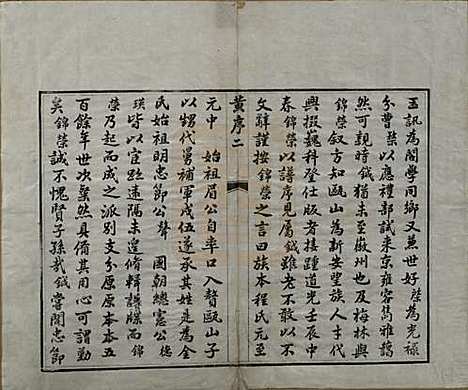 玉訊為閤學同鄉又兼世好 榮為光祿
分曹榮以應禮部試来京雍容儁雅藹
然可親時鉞猶未至徽州也及梅林與
錦榮叙方知甌山為新安望族人才代
興掇巍科登仕版者接踵道光壬辰中
春錦榮以譜序見屬鉞雖老不敢以不
文辭謹按錦榮之言曰族本程氏元至
黄序二
元中 始祖眉公自率口入贅甌山子
以甥代舅補軍戍伍遂承其姓是為金
氏始祖明忠節公聲 國朝總憲公德
瑛皆以宦跡遠隔未遑修輯譜牒而錦
榮乃起而成之派別支分原原本本五
百餘年世次粲然具備其用心可謂勤
矣錦榮誠不愧賢子孫哉鉞嘗聞忠節